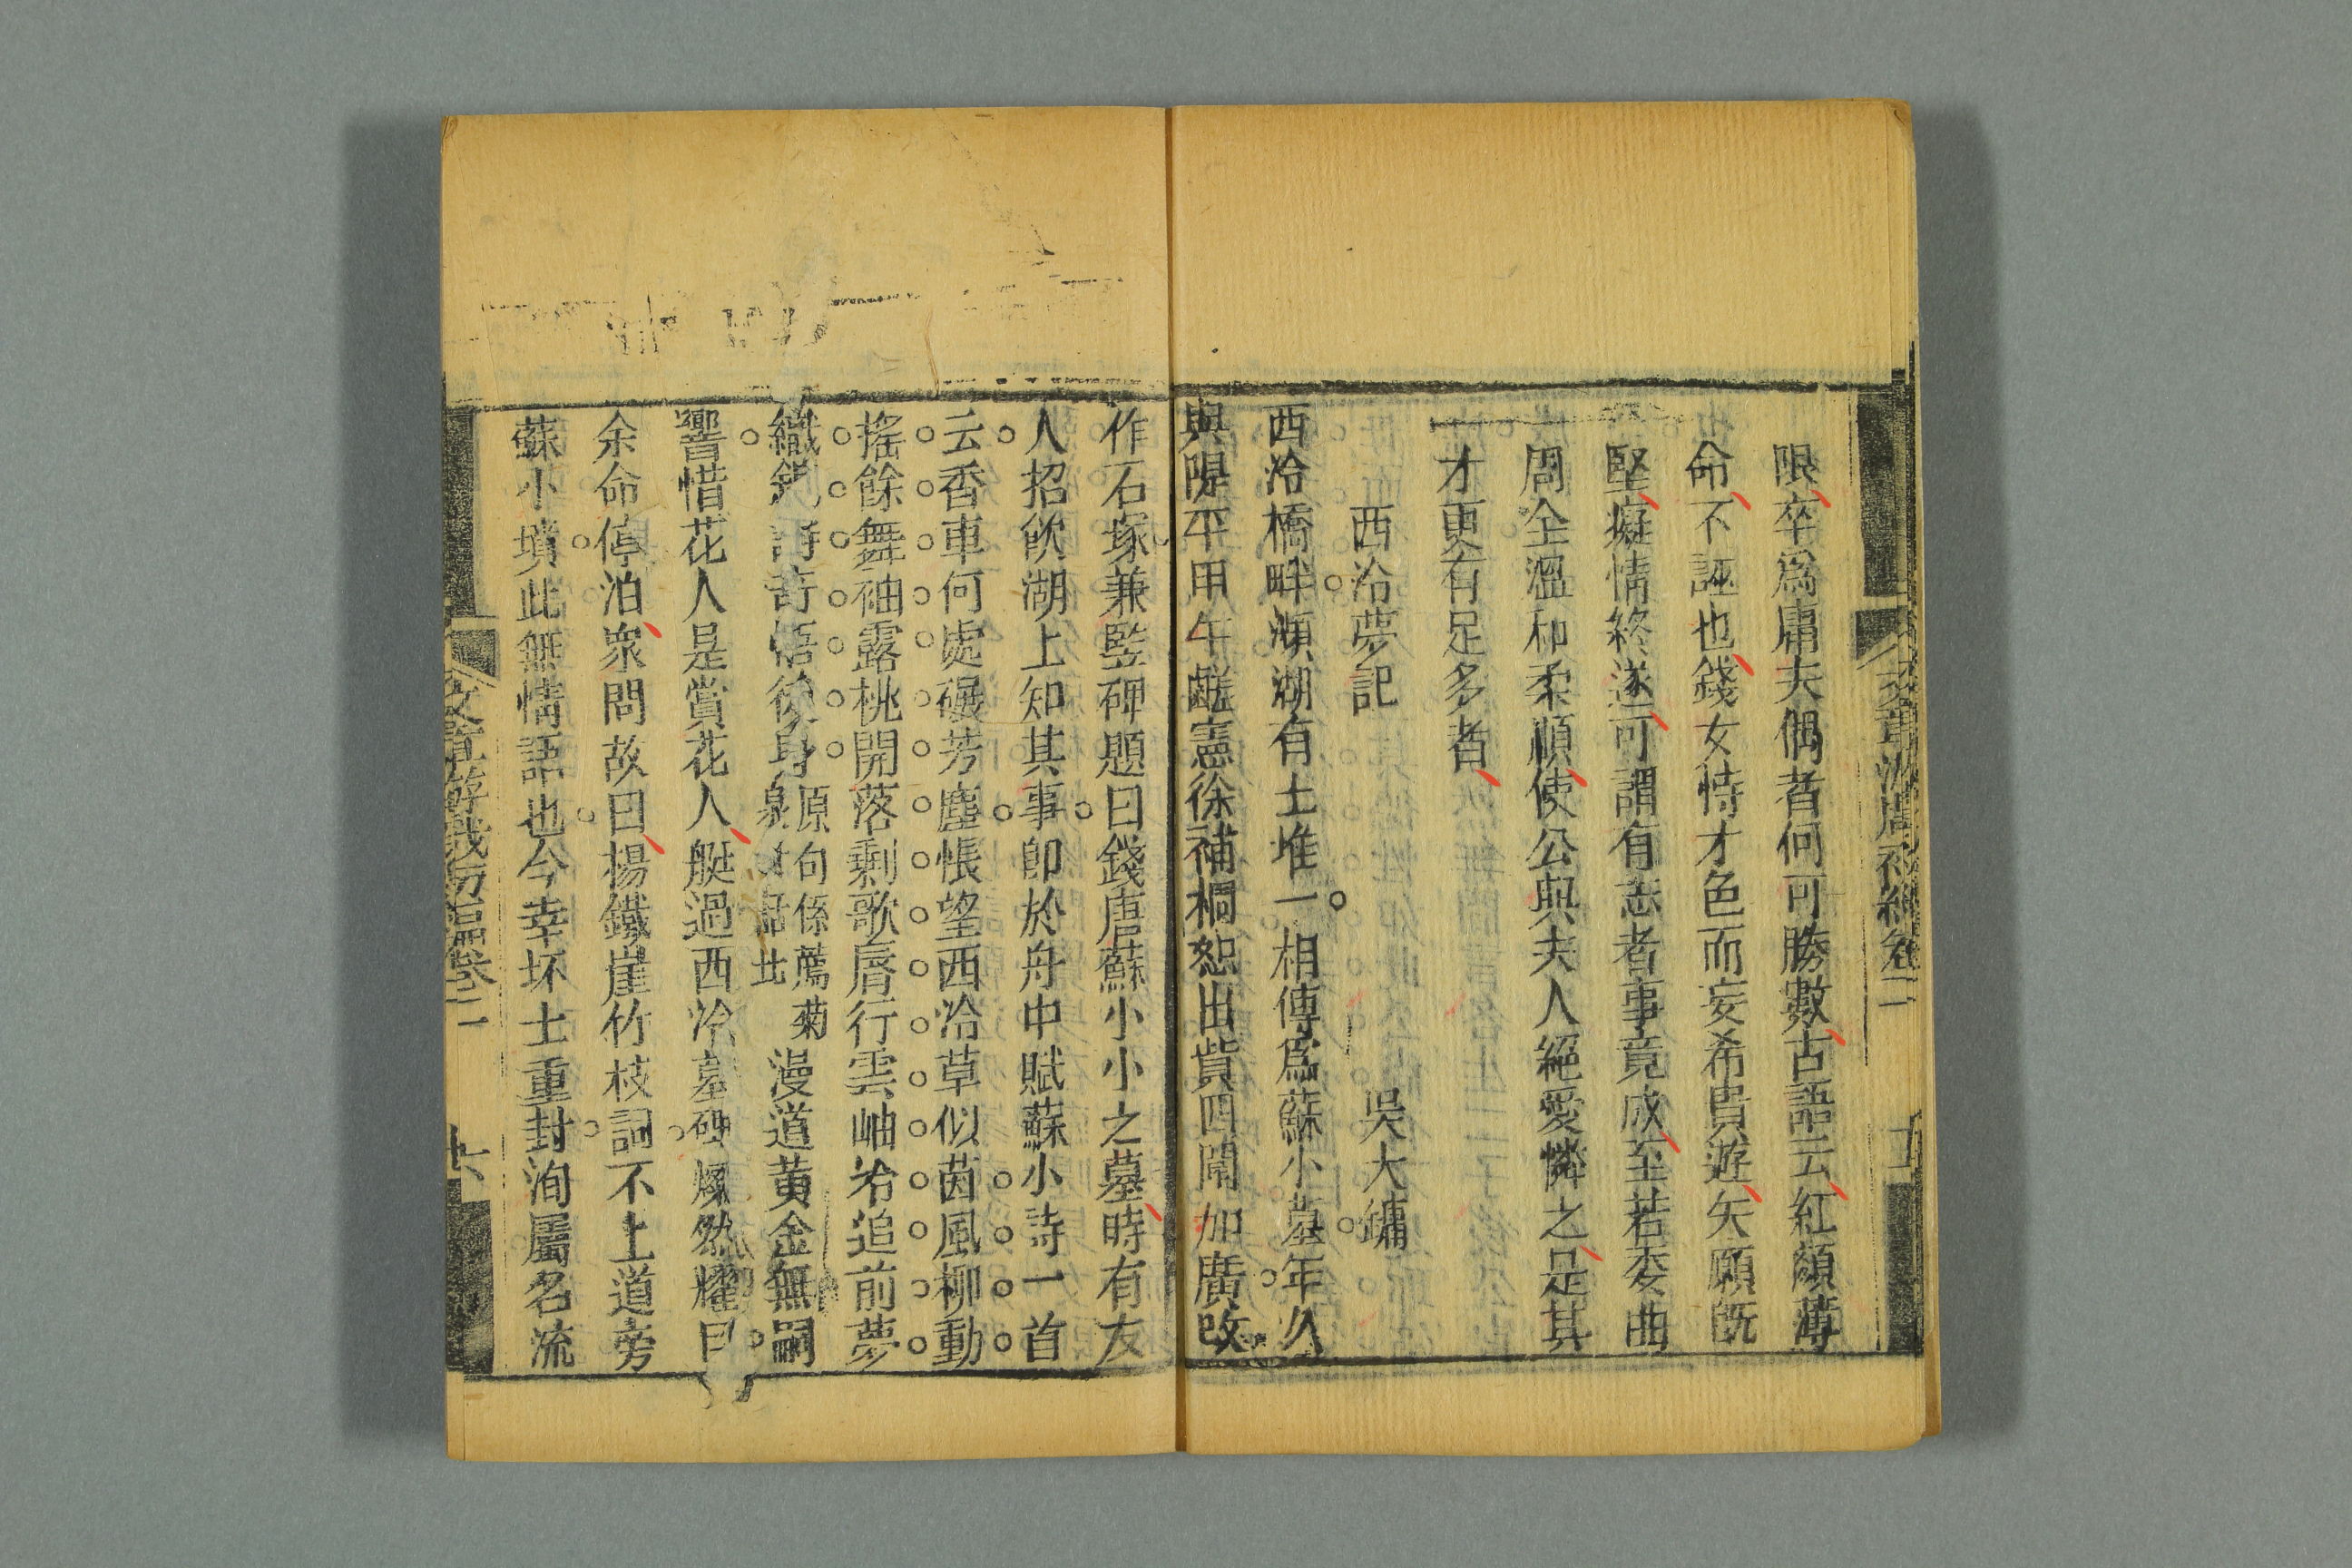 限卒爲庸夫偶者何可勝數古語云紅顏薄
命不誣也錢女恃才色而妄希貴遊矢願既
堅癡情終遂可謂有志者事竟成至若委曲
周全溫和柔順使公與夫人絕愛憐之是其
才更有足多者
西泠夢記 吳大鏞
西泠橋畔瀕湖有土堆一相傳爲蘇小墓年久
與隄平甲午鹺憲徐補桐恕出貲四闊加廣改
作石塚兼竪碑題曰錢唐蘇小小之墓時有友
人招飲湖上知其事卽於舟中賦蘇小詩一首
云香車何處碾芳塵悵望西泠草似茵風柳動
搖餘舞袖露桃開落剩歌脣行雲岫冷追前夢
織錦詩奇悟後身
原句係薦菊
泉 話此
漫道黃金無嗣
響惜花人是賞花人艇過西泠墓碑爛然耀目
余命停泊衆問故曰楊鐵崖竹枝詞不上道旁
蘇小墳此無情語也今幸坏土重封洵屬名流
文章游戲初編卷二 六